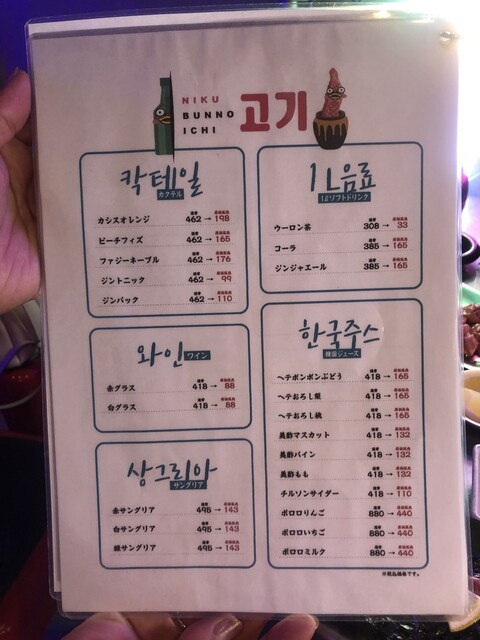 NIKU
BUNNO
ICHI
고기
칵테일
カクテル
カシスオレンジ 462 → 198
ピーチフィズ 462 → 165
ファジーネーブル 462 → 176
ジントニック 462 → 99
ジンバック 462 → 110
와인 ワイン
赤グラス 418 → 88
白グラス 418 → 88
상그리아
サングリア
赤サングリア 495 → 143
白サングリア 495 → 143
緑サングリア 495 → 143
1L음료
1ℓソフトドリンク
ウーロン茶 308 → 33
コーラ 385 → 165
ジンジャエール 385 → 165
한국주스
韓国ジュース
ヘテポンポンぶどう 418 → 165
ヘテおろし梨 418 → 165
ヘテおろし桃 418 → 165
美酢マスカット 418 → 132
美酢パイン 418 → 132
美酢もも 418 → 132
チルソンサイダー 418 → 110
ポロロりんご 880 → 440
ポロロいちご 880 → 440
ポロロミルク 880 → 440
※税込価格です。